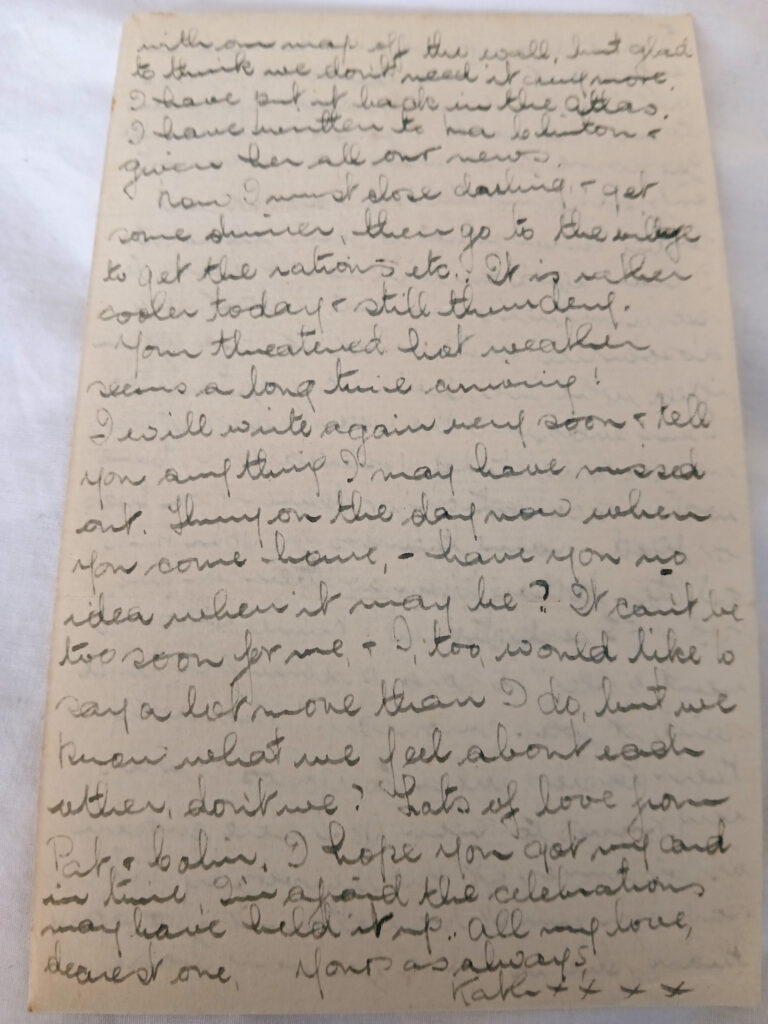 with our map off the wall, but glad
to think we don't need it any more.
I have put it back in the atlas.
I have written to Ma Clinton &
given her all our news.
Now I must close darling, & get
some dinner, then go to the village
to get the rations etc. It is rather
cooler today & still thundery.
Your threatened hot weather
seems a long time arriving!
I will write again very soon & tell
you anything I may have missed
out. Hurry on the day now when
you come home, - have you no
idea when it may be? It can't be
too soon for me, & I, too, would like to
say a lot more than I do, but we
know what we feel about each
other, don't we? Lots of love from
Pat, & Colin. I hope you got my card
in time, I'm afraid the celebrations
may have held it up.. All my love,
dearest one, Yours as always,
Kath x x x x